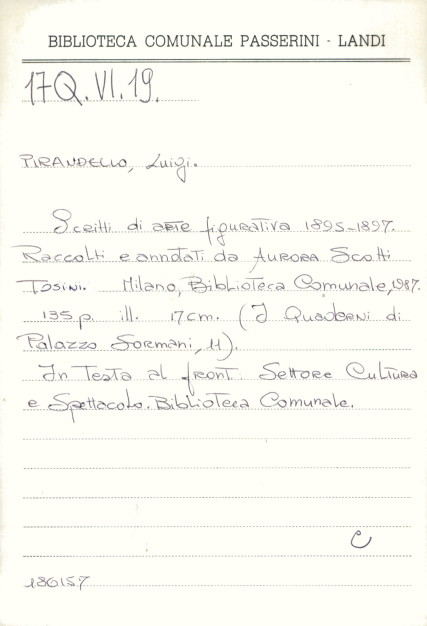 BIBLIOTECA COMUNALE PASSERINI - LANDI
17Q.VI.19.
PIRANDELLO, Luigi.
Scritti di arte figurativa 1895-1897.
Raccolti e annotati da AURORA Scotti
Tosini. Milano, Biblioteca Comunale, 1987.
195 p. ill. 17cm. (I Quaderni di
Palazzo Sormani, 11).
In Testa al front. Settore Cultura
e Spettacolo. Biblioteca Comunale.
C
186157